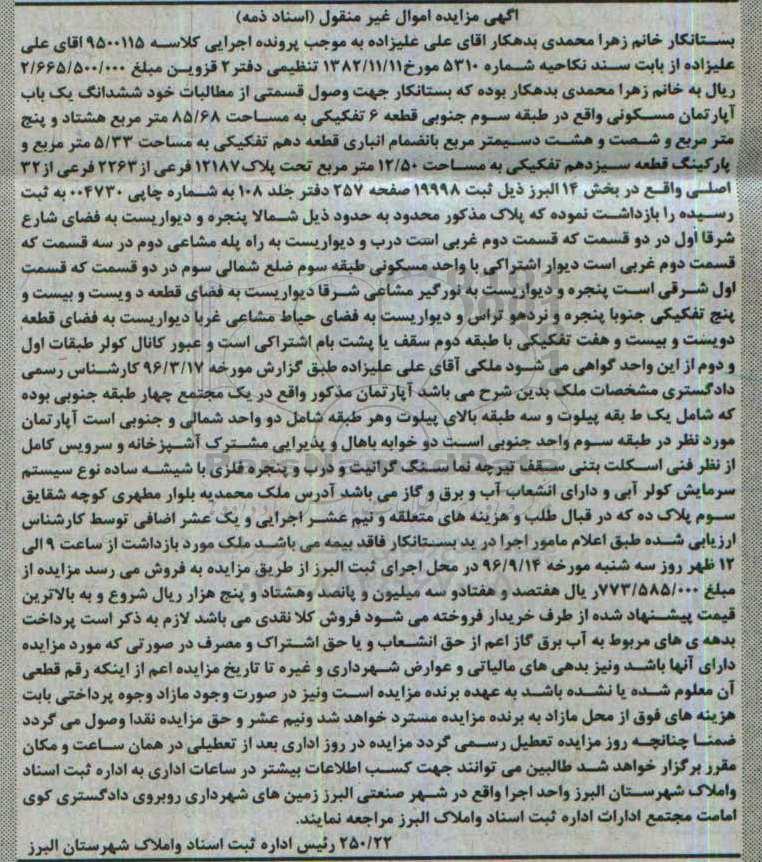 آگهی مزایده اموال غیر منقول (اسناد ذمه)
بستانکار خانم زهرا محمدی بدهکار اقای علی علیزاده به موجب پرونده اجرایی کلاسه ۹۵۰۰۱۱۵ اقای علی
علیزاده از بابت سند نکاحیه شماره ۵۳۱۰ مورخ ۱۳۸۲/۱۱/۱۱ تنظیمی دفتر۲ قزوین مبلغ ۲/۶۶۵/۵۰۰/۰۰۰
ریال به خانم زهرا محمدی بدهکار بوده که بستانکار جهت وصول قسمتی از مطالبات خود ششدانگ یک باب
آپارتمان مسکونی واقع در طبقه سوم جنوبی قطعه ۶ تفکیکی به مساحت ۸۵/۶۸ متر مربع هشتاد و پنج
متر مربع و شصت و هشت دسیمتر مربع بانضمام انباری قطعه دهم تفکیکی به مساحت ۵/۳۳ متر مربع و
پارکینگ قطعه سیزدهم تفکیکی به مساحت ۱۲/۵۰ متر مربع تحت پلاک ۱۲۱۸۷ فرعی از ۲۲۶۳ فرعی از ۳۲
اصلی واقع در بخش ۱۴ البرز ذیل ثبت ۱۹۹۹۸ صفحه ۲۵۷ دفتر جلد ۱۰۸ به شماره چاپی ۰۰۴۷۳۰ به ثبت
رسیده را بازداشت نموده که پلاک مذکور محدود به حدود ذیل شمالا پنجره و دیواریست به فضای شارع
شرقا اول در دو قسمت که قسمت دوم غربی است درب و دیواریست به راه پله مشاعی دوم در سه قسمت که
قسمت دوم غربی است دیوار اشتراکی با واحد مسکونی طبقه سوم ضلع شمالی سوم در دو قسمت که قسمت
اول شرقی است پنجره و دیواریست به نورگیر مشاعی شرقا دیواریست به فضای قطعه د ویست و بیست و
پنج تفکیکی جنوبا پنجره و نردهو تراس و دیواریست به فضای حیاط مشاعی غربا دیواریست به فضای قطعه
دویست و بیست و هفت تفکیکی با طبقه دوم سقف با پشت بام اشتراکی است و عبور کانال کولر طبقات اول
و دوم از این واحد گواهی می شود ملکی آقای علی علیزاده طبق گزارش مورخه ۹۶/۳/۱۷ کارشناس رسمی
دادگستری مشخصات ملک بدین شرح می باشد آپارتمان مذکور واقع در یک مجتمع چهار طبقه جنوبی بوده
که شامل یک ط بقه پیلوت و سه طبقه بالای پیلوت وهر طبقه شامل دو واحد شمالی و جنوبی است آپارتمان
مورد نظر در طبقه سوم واحد جنوبی است دو خوابه باهال و پذیرایی مشترک آشپزخانه و سرویس کامل
از نظر فنی اسکلت بتنی سقف تیرچه نما سنگ گرانیت و درب و پنجره فلزی با شیشه ساده نوع سیستم
سرمایش کولر آبی و دارای انشعاب آب و برق و گاز می باشد آدرس ملک محمدیه بلوار مطهری کوچه شقایق
سوم پلاک ده که در قبال طلب و هزینه های متعلقه و نیم عشر اجرایی و یک عشر اضافی توسط کارشناس
ارزیابی شده طبق اعلام مامور اجرا در ید بستانکار فاقد بیمه می باشد ملک مورد بازداشت از ساعت ۹ الی
۱۲ ظهر روز سه شنبه مورخه ۹۶/۹/۱۴ در محل اجرای ثبت البرز از طریق مزایده به فروش می رسد مزایده از
مبلغ ۷۷۳/۵۸۵/۰۰۰ر یال هفتصد و هفتادو سه میلیون و پانصد وهشتاد و پنج هزار ریال شروع و به بالاترین
قیمت پیشنهاد شده از طرف خریدار فروخته می شود فروش کلا نقدی می باشد لازم به ذکر است پرداخت
بدهه ی های مربوط به آب برق گاز اعم از حق انشعاب و یا حق اشتراک و مصرف در صورتی که مورد مزایده
دارای آنها باشد ونیز بدهی های مالیاتی و عوارض شهرداری و غیره تا تاریخ مزایده اعم از اینکه رقم قطعی
آن معلوم شده یا نشده باشد به عهده برنده مزایده است ونیز در صورت وجود مازاد وجوه پرداختی بابت
هزینه های فوق از محل مازاد به برنده مزایده مسترد خواهد شد ونیم عشر و حق مزایده نقدا وصول می گردد
ضمنا چنانچه روز مزایده تعطیل رسمی گردد مزایده در روز اداری بعد از تعطیلی در همان ساعت و مکان
مقرر برگزار خواهد شد طالبین می توانند جهت کسب اطلاعات بیشتر در ساعات اداری به اداره ثبت اسناد
واملاک شهرستان البرز واحد اجرا واقع در شهر صنعتی البرز زمین های شهرداری روبروی دادگستری کوی
امامت مجتمع ادارات اداره ثبت اسناد واملاک البرز مراجعه نمایند.
۲۵۰/۲۲ رئیس اداره ثبت اسناد واملاک شهرستان البرز